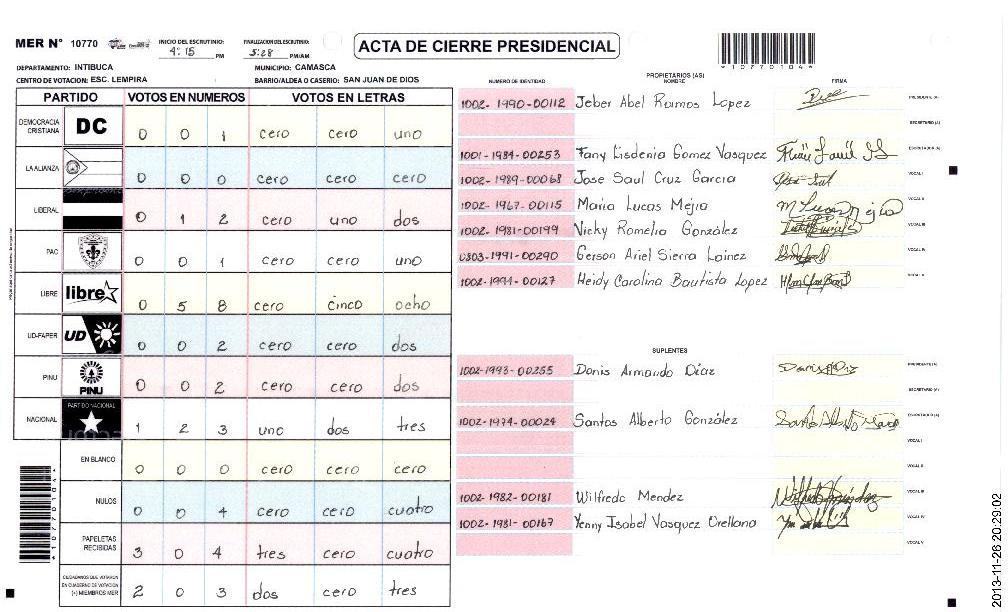 MER N° 10770
INICIO DEL ESCRUTINIO: 4:15 PM
FINALIZACION DEL ESCRUTINIO: 5:28 PM/AM
ACTA DE CIERRE PRESIDENCIAL
*10770104*
DEPARTAMENTO: INTIBUCA
MUNICIPIO: CAMASCA
CENTRO DE VOTACION: ESC. LEMPIRA
BARRIO/ALDEA O CASERIO: SAN JUAN DE DIOS
PARTIDO VOTOS EN NUMEROS VOTOS EN LETRAS
DEMOCRACIA CRISTIANA DC 0 0 1 cero cero uno
LA ALIANZA 0 0 0 cero cero cero
LIBERAL 0 1 2 cero uno dos
PAC 0 0 1 cero cero uno
LIBRE libre 0 5 8 cero cinco ocho
UD-FAPER UD 0 0 2 cero cero dos
PINU PINU 0 0 2 cero cero dos
NACIONAL PARTIDO NACIONAL 1 2 3 uno dos tres
EN BLANCO 0 0 0 cero cero cero
NULOS 0 0 4 cero cero cuatro
PAPELETAS RECIBIDAS 3 0 4 tres cero cuatro
CIUDADANOS QUE VOTARON EN CUADERNO DE VOTACION (+) MIEMBROS MER 2 0 3 dos cero tres
*10770104*
NUMERO DE IDENTIDAD PROPIETARIOS (AS) NOMBRE FIRMA
1002-1990-00112 Jeber Abel Ramos Lopez PRESIDENTE (A)
SECRETARIO (A)
1001-1984-00253 Fany Lisdenia Gomez Vasquez ESCRUTADOR (A)
1002-1989-00068 Jose Saul Cruz Garcia VOCAL I
1002-1967-00115 Maria Lucas Mejia VOCAL II
1002-1981-00199 Nicky Romelia González VOCAL III
0303-1991-00290 Gerson Ariel Sierra Lainez VOCAL IV
1002-1994-00127 Heidy Carolina Bautista Lopez VOCAL V
SUPLENTES
1002-1993-00255 Donis Armando Díaz PRESIDENTE (A)
SECRETARIO (A)
1002-1974-00024 Santos Alberto González ESCRUTADOR (A)
VOCAL I
VOCAL II
1002-1982-00181 Wilfredo Mendez VOCAL III
1002-1981-00167 Yenny Isabel Vasquez Orellana VOCAL IV
VOCAL V
2013-11-26 20:29:02